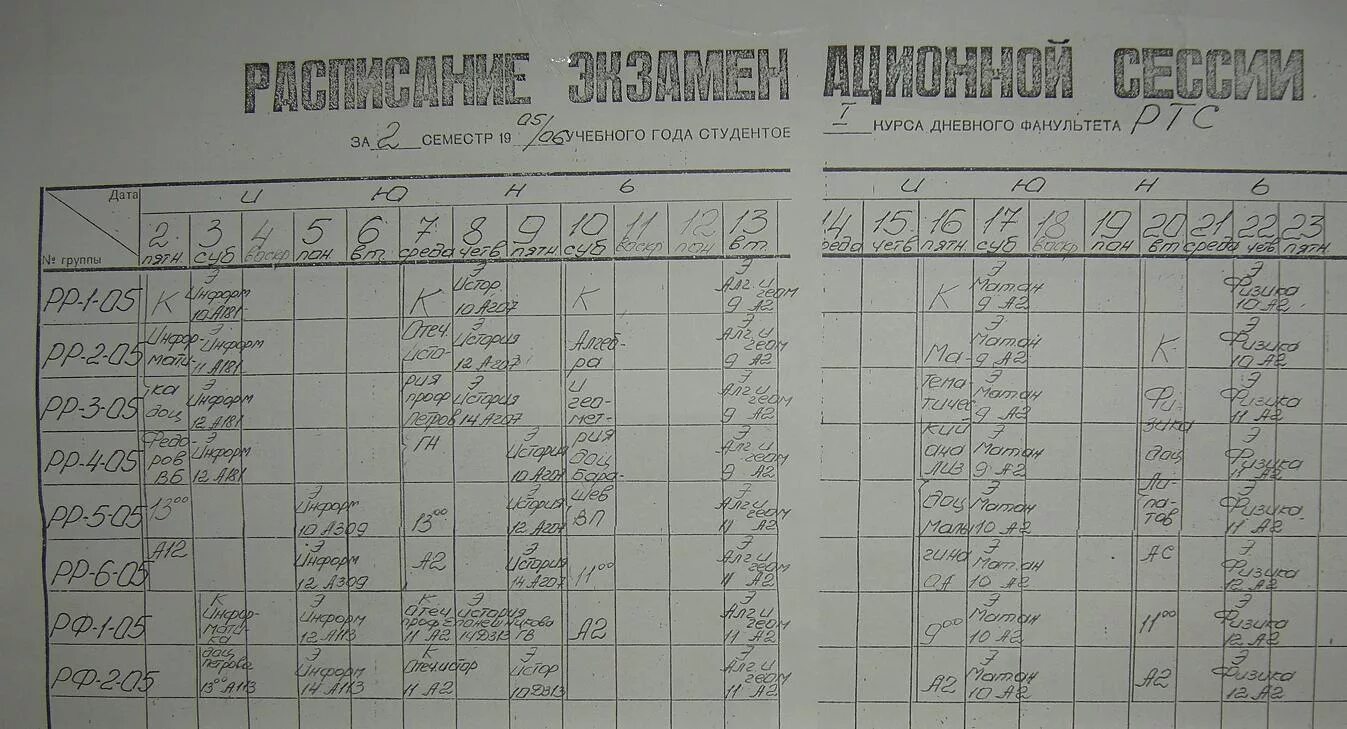 РАСПИСАНИЕ ЭКЗАМЕНАЦИОННОЙ СЕССИИ
ЗА 2 СЕМЕСТР 19 05/06 УЧЕБНОГО ГОДА СТУДЕНТОЕ I КУРСА ДНЕВНОГО ФАКУЛЬТЕТА РТС
Дата И Ю Н Ь И Ю Н Ь
№ группы 2 3 4 5 6 7 8 9 10 11 12 13 14 15 16 17 18 19 20 21 22 23
пятн суб воскр пон вт среда четв пятн суб воскр пон вт реда четв пятн суб воскр пон вт среда четв пятн
Э Э Э Э Э
РР-1-05 К Информ К Истор К Алг. и геом К Матан Физика
10 А181 10 А207 9 А2 9 А2 10 А2
Инфор- Э Отеч. Э Э Э Э
РР-2-05 мати- Информ исто- История Алгеб- Алг. и геом Ма- Матан К Физика
11 А181 12 А207 ра 9 А2 9 А2 10 А2
ка Э рия Э и Э тема- Э Э
РР-3-05 доц Информ проф История гео- Алг. и геом тичес Матан Фи- Физика
12 А181 Петров 14 А207 мет- 9 А2 9 А2 зика 11 А2
Федо- Э ГН Э рия Э кий Э Э
РР-4-05 ров Информ История доц Алг. и геом ана Матан доц Физика
ВБ 12 А181 10 А207 Бара- 9 А2 лиз 9 А2 Ли- 11 А2
Э Э шев Э Э Э
РР-5-05 13⁰⁰ Информ 13⁰⁰ История ВП Алг. и геом доц Матан па- Физика
10 А309 12 А207 11 А2 Малы 10 А2 тов 11 А2
А12 Э Э Э Э Э
РР-6-05 Информ А2 История 11⁰⁰ Алг. и геом гина Матан АС Физика
12 А309 14 А207 11 А2 ОА 10 А2 12 А2
К Э К Э Э Э Э
РФ-1-05 Инфор- Информ Отеч. история Алг. и геом 9⁰⁰ Матан 11⁰⁰ Физика
мати- проф
ка 12 А113 11 А2 14 Д313 ГВ А2 11 А2 10 А2 12 А2
доц Э К Э Э Э Э
РФ-2-05 Петрова Информ Отеч истор Истор Алг. и геом А2 Матан А2 Физика
13⁰⁰ А113 14 А113 11 А2 10 Д313 11 А2 10 А2 12 А2